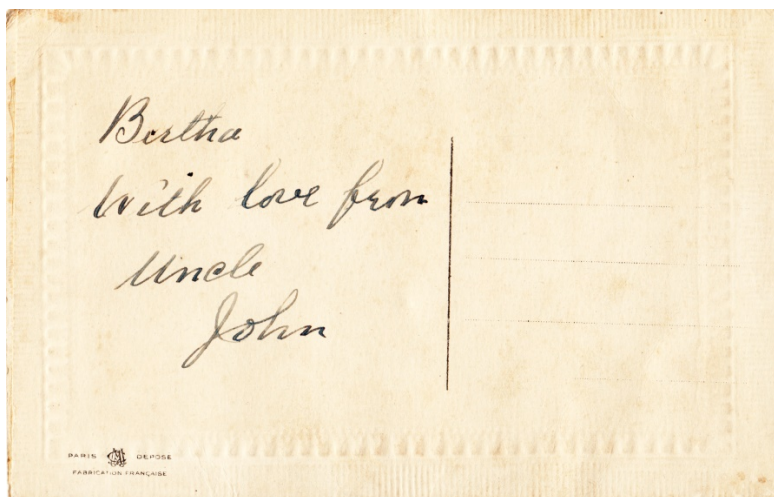 Bertha
With love from
Uncle
John
PARIS DEPOSE
FABRICATION FRANÇAISE